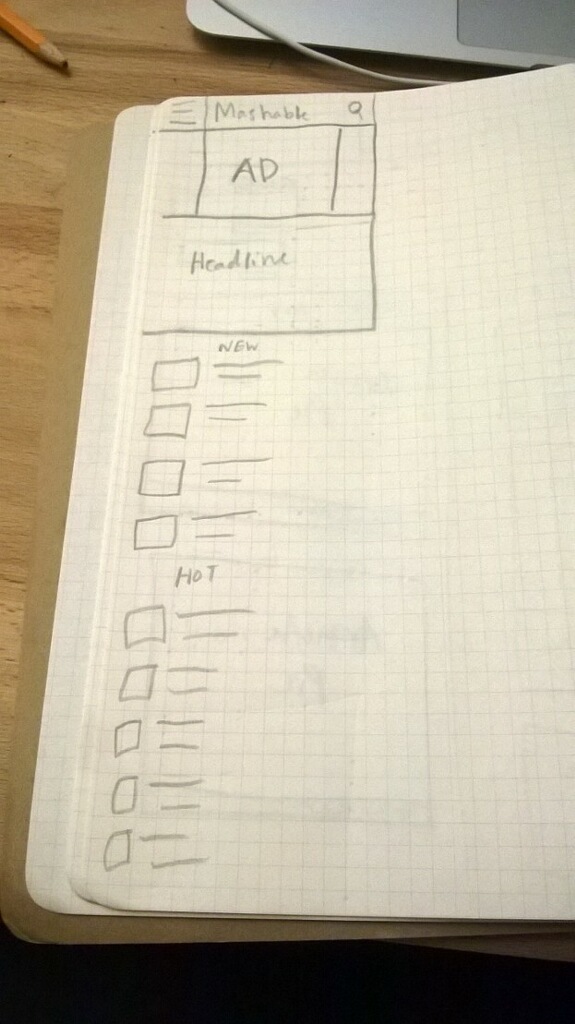 Mashable
AD
Headline
NEW
HOT